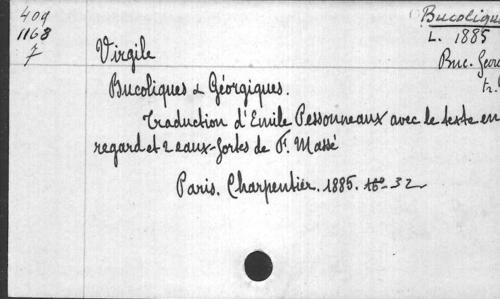 409
1168
7
Bucolique
L. 1885
Buc. Geor
tr.
Virgile
Bucoliques & Géorgiques.
Traduction d'Emile Pessonneaux avec le texte en
regard et 2 eaux-fortes de F. Massé
Paris. Charpentier. 1885. in-32